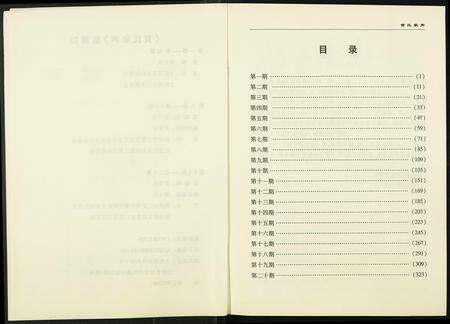 黄氏家声
目 录
第一期 ……………………………………… (1)
第二期 ……………………………………… (11)
第三期 ……………………………………… (21)
第四期 ……………………………………… (33)
第五期 ……………………………………… (47)
第六期 ……………………………………… (59)
第七期 ……………………………………… (71)
第八期 ……………………………………… (85)
第九期 ……………………………………… (109)
第十期 ……………………………………… (135)
第十一期 …………………………………… (151)
第十二期 …………………………………… (169)
第十三期 …………………………………… (185)
第十四期 …………………………………… (203)
第十五期 …………………………………… (223)
第十六期 …………………………………… (245)
第十七期 …………………………………… (267)
第十八期 …………………………………… (291)
第十九期 …………………………………… (309)
第二十期 …………………………………… (323)